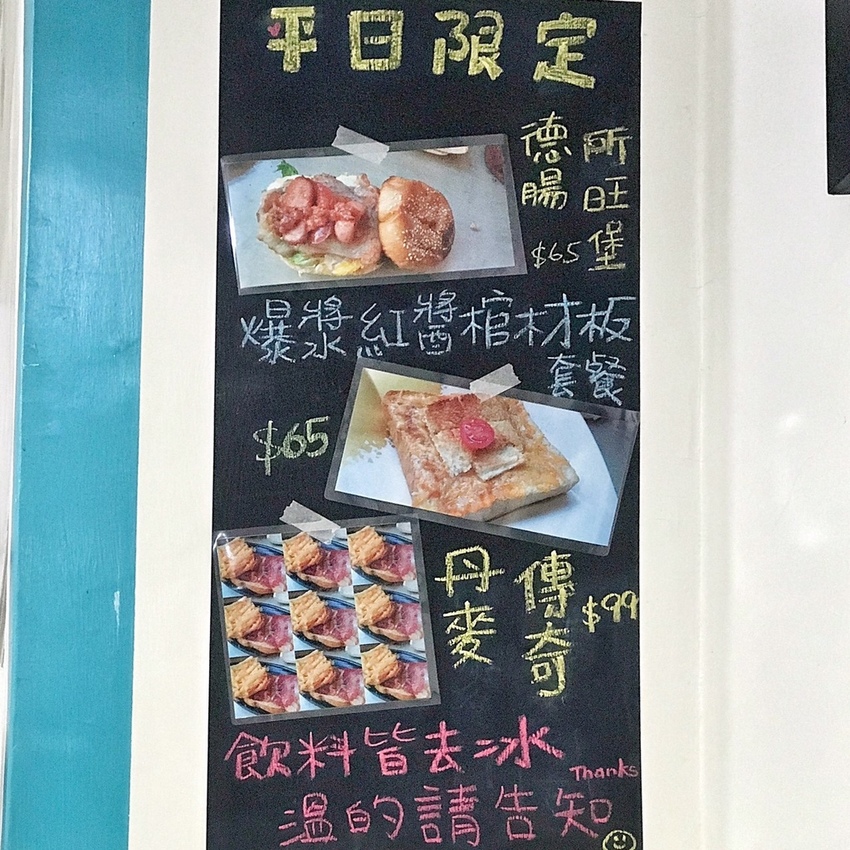 平日限定
德腸
所旺堡
$65
爆漿紅醬棺材板
套餐
$65
丹麥
傳奇
$99
飲料皆去冰
Thanks
溫的請告知